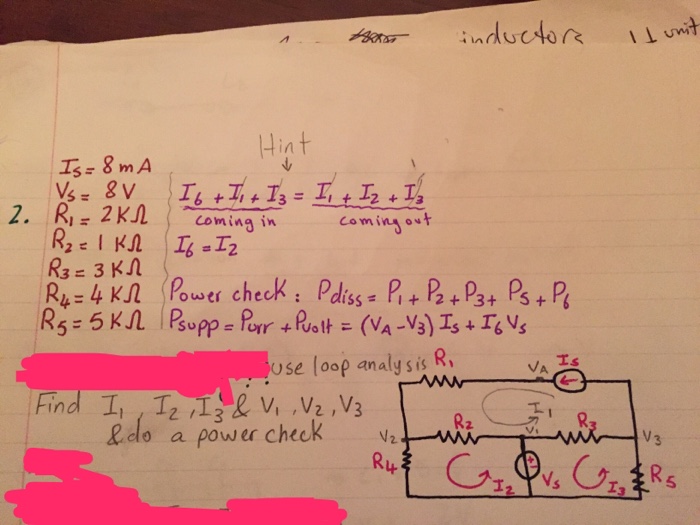 inductors 11 unit
Hint
Is = 8 mA
Vs = 8 V
2. R1 = 2 KΩ
R2 = 1 KΩ
R3 = 3 KΩ
R4 = 4 KΩ
R5 = 5 KΩ
I6 + I1 + I3 = I1 + I2 + I3
coming in coming out
I6 = I2
Power check : Pdiss = P1 + P2 + P3 + P5 + P6
Psupp = Purr + Pvolt = (VA - V3) Is + I6 Vs
use loop analysis
Find I1, I2, I3 & V1, V2, V3
& do a power check
R1 VA Is
I1
R2 V1 R3
V2 V3
R4 I2 Vs I3 R5